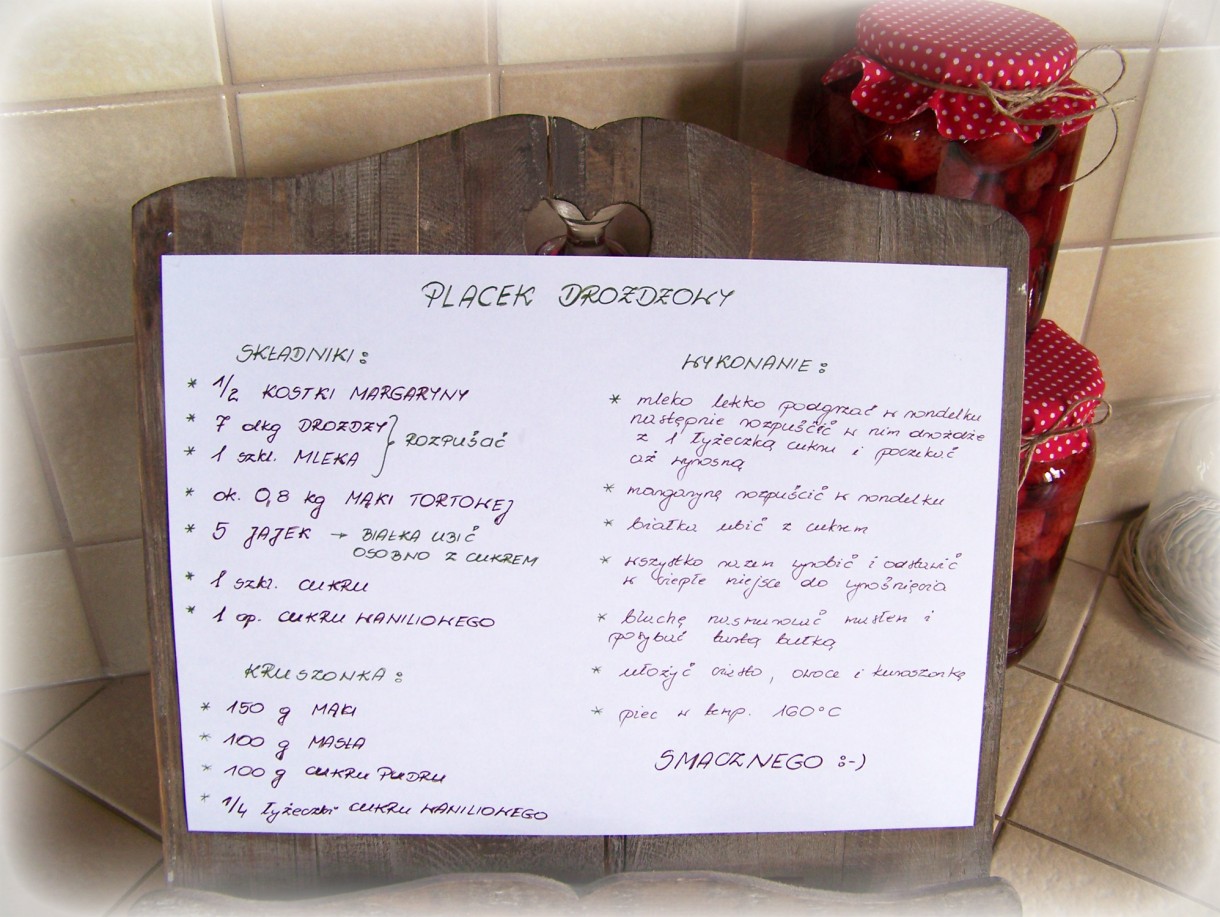 PLACEK DROŻDŻOWY
SKŁADNIKI:
* 1/2 KOSTKI MARGARYNY
* 7 dkg DROŻDŻY
* 1 szkl. MLEKA
ROZPUŚCIĆ
* ok. 0,8 kg MĄKI TORTOWEJ
* 5 JAJEK → BIAŁKA UBIĆ
OSOBNO Z CUKREM
* 1 szkl. CUKRU
* 1 op. CUKRU WANILIOWEGO
KRUSZONKA:
* 150 g MĄKI
* 100 g MASŁA
* 100 g CUKRU PUDRU
* 1/4 łyżeczki CUKRU WANILIOWEGO
WYKONANIE:
* mleko lekko podgrzać w rondelku
następnie rozpuścić w nim drożdże
z 1 łyżeczką cukru i poczekać
aż wyrosną
* margarynę rozpuścić w rondelku
* białka ubić z cukrem
* wszystko razem wyrobić i odstawić
w ciepłe miejsce do wyrośnięcia
* blachę nasmarować masłem i
posypać tartą bułką
* ułożyć ciasto, owoce i kruszonkę
* piec w temp. 160°C
SMACZNEGO :-)